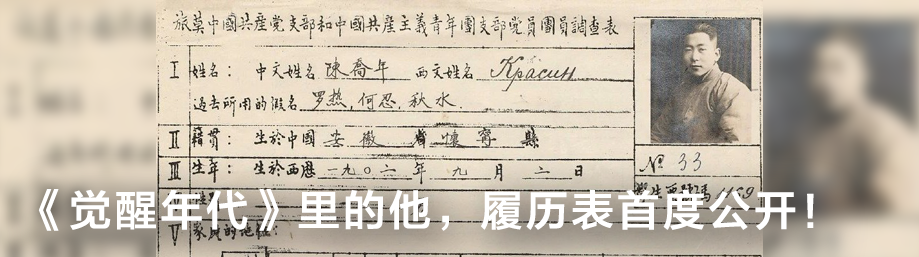 旅莫中國共產党支部和中國共產主義青年團支部党員團員調查表
I 姓名： 中文姓名 陳喬年 西文姓名 Красин
過去所用的假名 罗热, 何忍, 秋水
II 籍貫： 生於中國 安徽省懷寧縣
III 生年： 生於西曆 一九〇二年九月二日
№ 33
《觉醒年代》里的他，履历表首度公开！
V